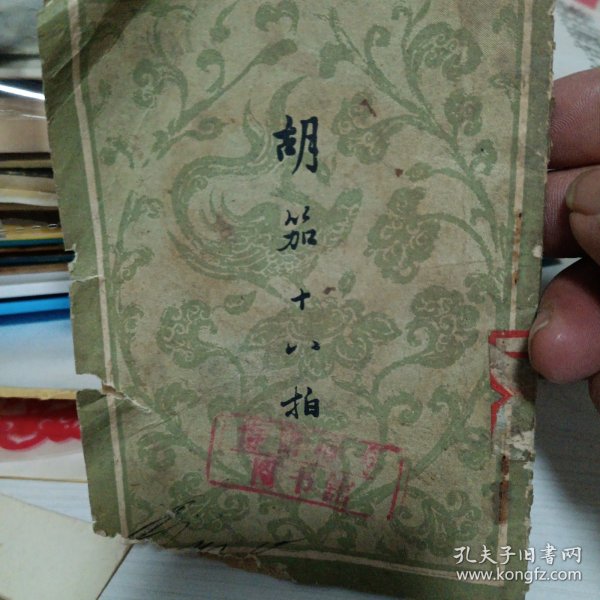 胡笳十八拍
图书馆
孔夫子旧书网
www.kongfz.com